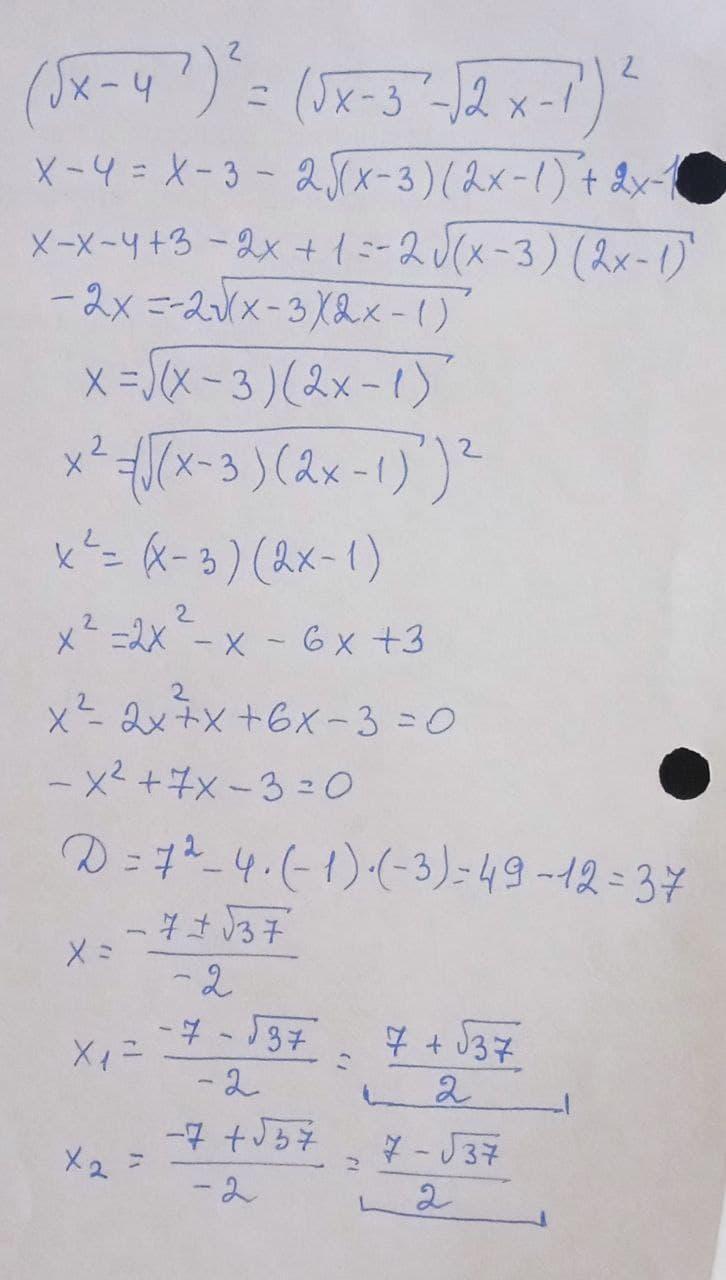 (√(x-4))² = (√(x-3) - √(2x-1))²
x-4 = x-3 - 2√((x-3)(2x-1)) + 2x-1
x-x-4+3-2x+1=-2√((x-3)(2x-1))
-2x=-2√((x-3)(2x-1))
x=√((x-3)(2x-1))
x²=(√((x-3)(2x-1)))²
x²=(x-3)(2x-1)
x²=2x²-x-6x+3
x²-2x²+x+6x-3=0
-x²+7x-3=0
D=7²-4·(-1)·(-3)=49-12=37
x=(-7±√37)/(-2)
x₁=(-7-√37)/(-2)=(7+√37)/2
x₂=(-7+√37)/(-2)=(7-√37)/2